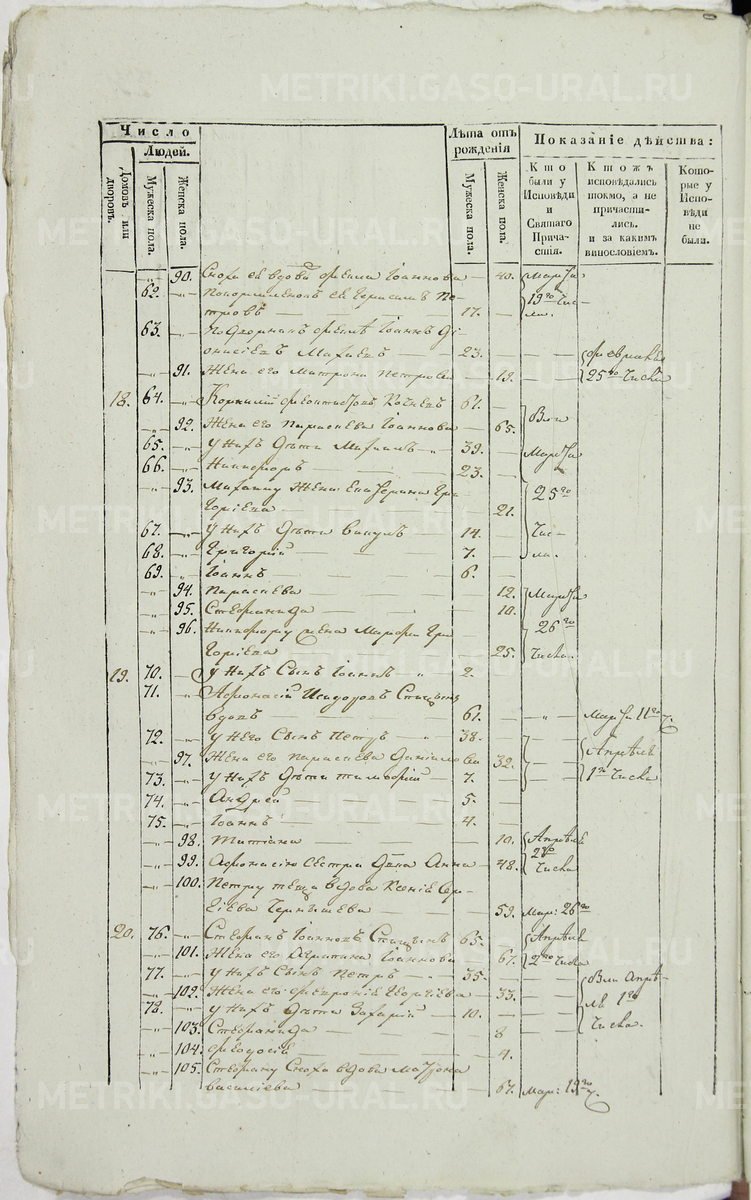 Число
Лѣта отъ рожденія
Показаніе дѣйства:
Людей.
Домовъ или дворовъ.
Мужеска пола.
Женска пола.
Мужеска пола.
Женска пола.
Кто были у Исповѣди и Святаго Причастія.
Ктожъ исповѣдались токмо, а не причастились. и за какимъ винословіемъ.
Которые у Исповѣди не были.
90. Сноха ея вдова Іоаннова — 40. Марта
62. ея Герасимъ Пе- 19го Чис-
тровъ — 17. ла.
63. Іоаннъ Ді-
онисіевъ — 23. февраля
91. Жена его Матрона Петрова — 19. 25го Числа
18. 64. Корнилій 61.
92. Жена его Параскева Іоаннова — 65.
65. У нихъ дѣти — 39. Марта
66. Никифоръ — 23.
93. жена Екатерина Гри- 25го
горіева — 21.
67. У нихъ дѣти Викулъ — 14. Чис-
68. Григорій — 7. ла.
69. Іоаннъ — 6.
94. Параскева — 12. Марта
95. Стефанида — 10.
96. Никифору жена Марфа Гри 26го
горіева — 25. Числа.
19. 70. У нихъ сынъ Іоаннъ — 2.
71. Афонасій Исидоровъ
вдовъ — 61. Марта 11го
72. У него сынъ Петръ — 38.
97. Жена его Параскева Даніилова 32. Апрѣля
73. У нихъ дѣти Тимофей — 7. 1го Числа
74. Андрей — 5.
75. Іоаннъ — 4.
98. Татіана — 10. Апрѣля
99. Афонасію сестра дѣвка Анна — 48. 2го Числа
100. Петру теща вдова Ксенія Сер-
гіева Чернышева — 59. Мар: 26го
20. 76. Стефанъ Іоанновъ 65. Апрѣля
101. Жена его Іоаннова 67. 2го Числа
77. У нихъ сынъ Петръ — 35.
102. Жена его Февронія Георгіева — 33. Апрѣ-
78. У нихъ дѣти Захарій — 10. ля 1го
103. Стефанида — 8 Числа.
104. Феодосія — 4.
105. Стефану сноха вдова Матрона
Василіева — 67. Мар: 19го
METRIKI.GASO-URAL.RU